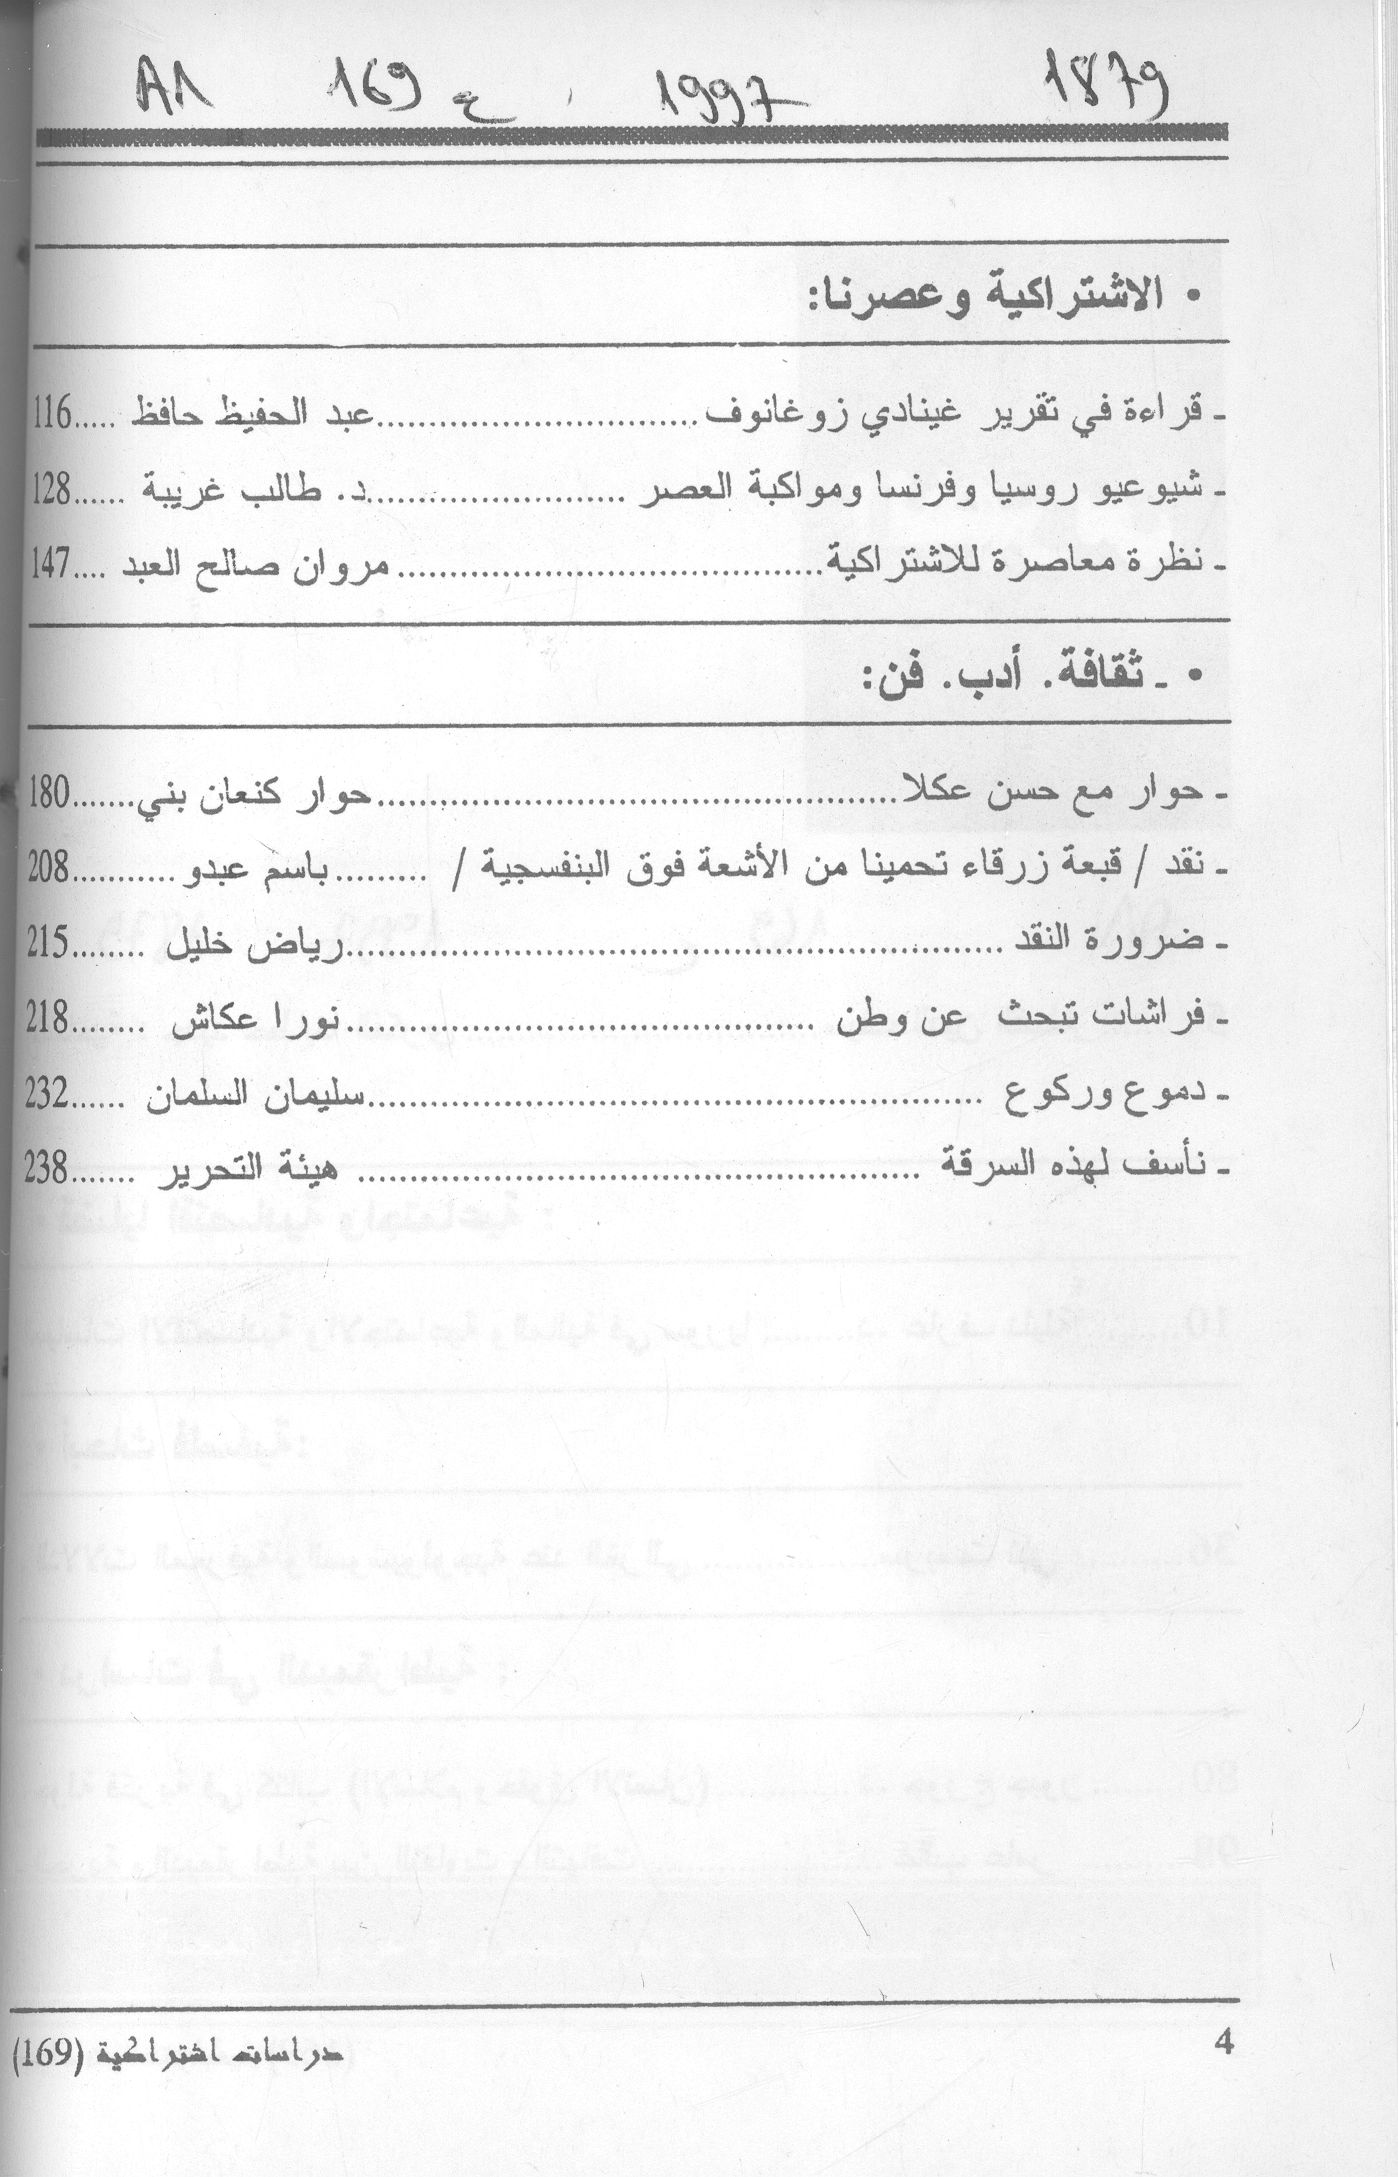 1879 1997 ع 169 A1
• الاشتراكية وعصرنا:
ـ قراءة في تقرير غينادي زوغانوف...............................عبد الحفيظ حافظ .....116
ـ شيوعيو روسيا وفرنسا ومواكبة العصر .........................د. طالب غريبة ......128
ـ نظرة معاصرة للاشتراكية.........................................مروان صالح العبد ....147
• ـ ثقافة. أدب. فن:
ـ حوار مع حسن عكلا..................................................حوار كنعان بني.......180
ـ نقد / قبعة زرقاء تحمينا من الأشعة فوق البنفسجية / .........باسم عبدو ...........208
ـ ضرورة النقد ...............................................................رياض خليل ........215
ـ فراشات تبحث عن وطن .............................................نورا عكاش ........218
ـ دموع وركوع ...........................................................سليمان السلمان ......232
ـ نأسف لهذه السرقة ...................................................... هيئة التحرير .......238
4
دراسات اشتراكية (169)